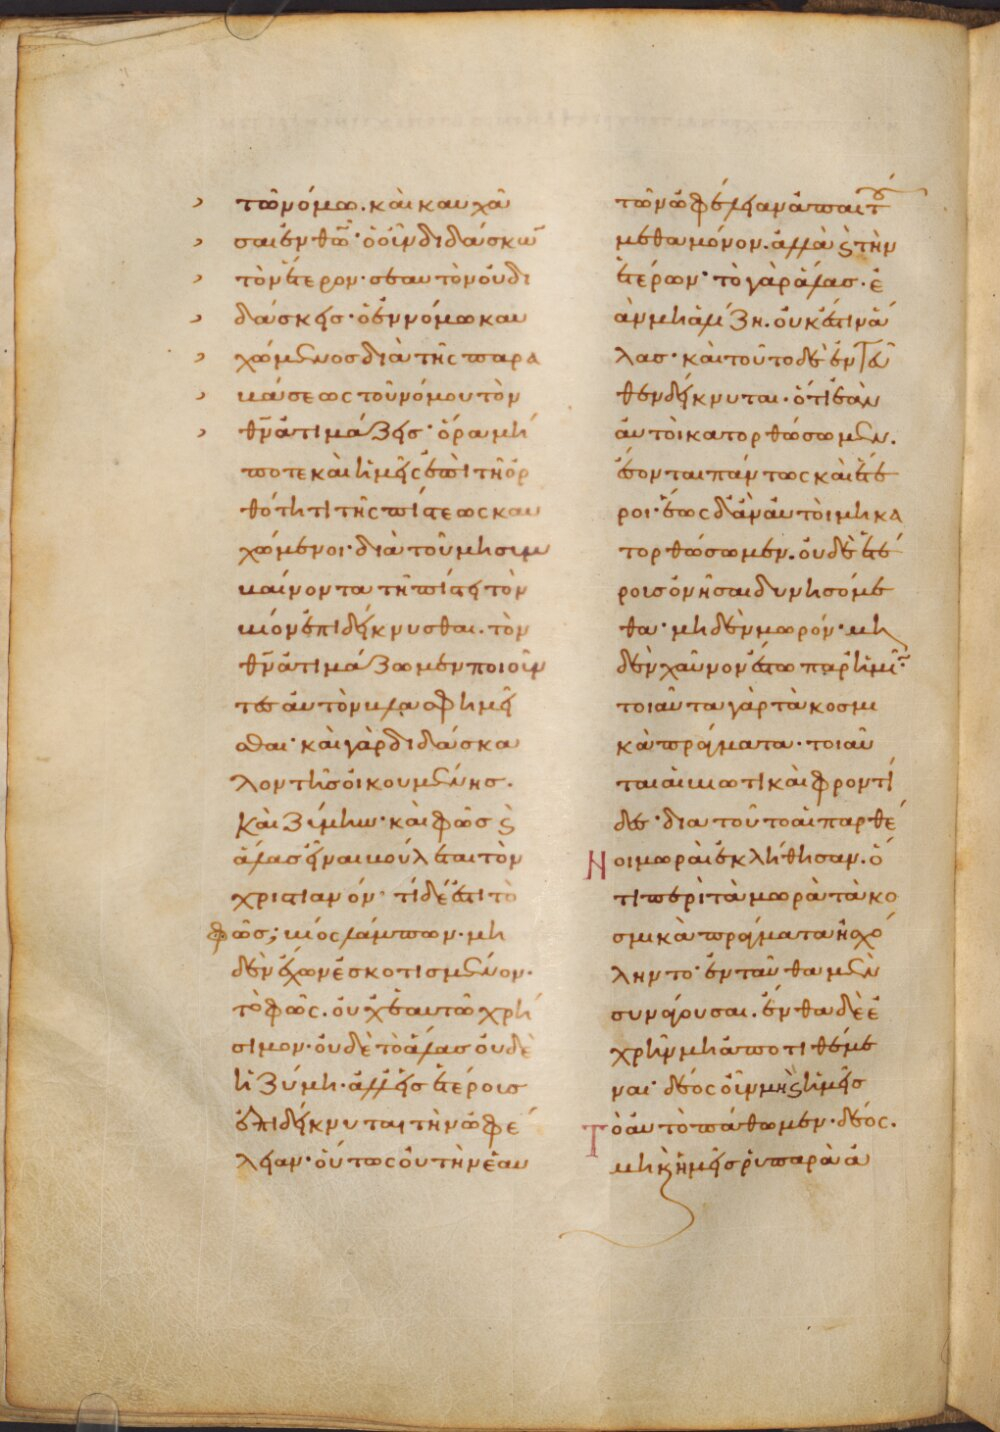 τῶ νόμω. καὶ καυχᾶ
σαι ἐν θ̅ῶ· ὁ οὖν διδάσκων
τὸν ἕτερον· σεαυτὸν οὐ δι
δάσκεις· ὁ ἐν νόμω καυ
χώμενος διὰ τῆς παρα
βάσεως τοῦ νόμου τὸν
θ̅ν̅ ἀτιμάζεις· ὅρα μή
ποτε καὶ ἡμεῖς ἐπὶ τῆ ὀρ
θότητι τῆς πίστεως καυ
χώμενοι· διὰ τοῦ μὴ συμ
βαίνοντα τῆ πίστει τὸν
βίον ἐπιδείκνυσθαι. τὸν
θ̅ν̅ ἀτιμάζωμεν ποιοῦν
τες αὐτὸν βλασφημεῖ
σθαι· καὶ γὰρ διδάσκα
λον τῆς οἰκουμένης.
καὶ ζύμην· καὶ φῶς ϗ
ἅλας εἶναι βούλεται τὸν
χριστιανόν· τί δέ ἐστι τὸ
φῶς; βίος λάμπων· μη
δὲν ἔχων ἐσκοτισμένον·
τὸ φῶς. οὐχ ἑαυτῶ χρή
σιμον· οὐδὲ τὸ ἅλας οὐδὲ
ἡ ζύμη· ἀλλ' εἰς ἑτέροις
ἐπιδείκνυται τὴν ὠφέ
λειαν· οὕτως οὐ τὴν ἑαυ
τῶν ὠφέλειαν ἀπαιτού
μεθα μόνον. ἀλλὰ ϗ τὴν
ἑτέρων· τὸ γὰρ ἅλας· ἐ
ὰν μὴ ἁλίζη. οὐκ ἔστιν ἅ
λας· καὶ τοῦτο δὲ ἐντεῦ
θεν δείκνυται· ὅτι ἐὰν
αὐτοὶ κατορθώσωμεν.
ἔσονται πάντως καὶ ἕτε
ροι· ἕως δ' ἂν αὐτοὶ μὴ κα
τορθώσωμεν. οὐδὲ ἑτέ
ροις ὀνῆσαι δυνησόμε
θα· μηδὲν μωρόν· μη
δὲν χαῦνον ἔστω παρ' ἡμῖν·
τοιαῦτα γὰρ τὰ κοσμι
κὰ πράγματα· τοιαῦ
ται αἱ βιωτικαὶ φροντί
δες· διατοῦτο αἱ παρθέ
νοι μωραὶ ἐκλήθησαν. ὅ
τι περὶ τὰ μωρὰ τὰ κο
σμικὰ πράγματα ἠσχό
ληντο· ἐνταῦθα μὲν
συνάγουσαι. ἔνθα δὲ ἐ
χρῆν μὴ ἀποτιθέμε
ναι· δέος οὖν μὴ ϗ ἡμεῖς
τὸ αὐτὸ πάθωμεν· δέος.
μὴ ϗ ἡμεῖς ῥυπαρὰ ἀ